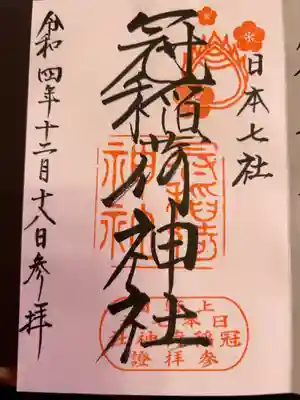 日本七社
冠稲荷神社
令和四年十二月十八日参拝
日本七社
冠稲荷神社
参拝證